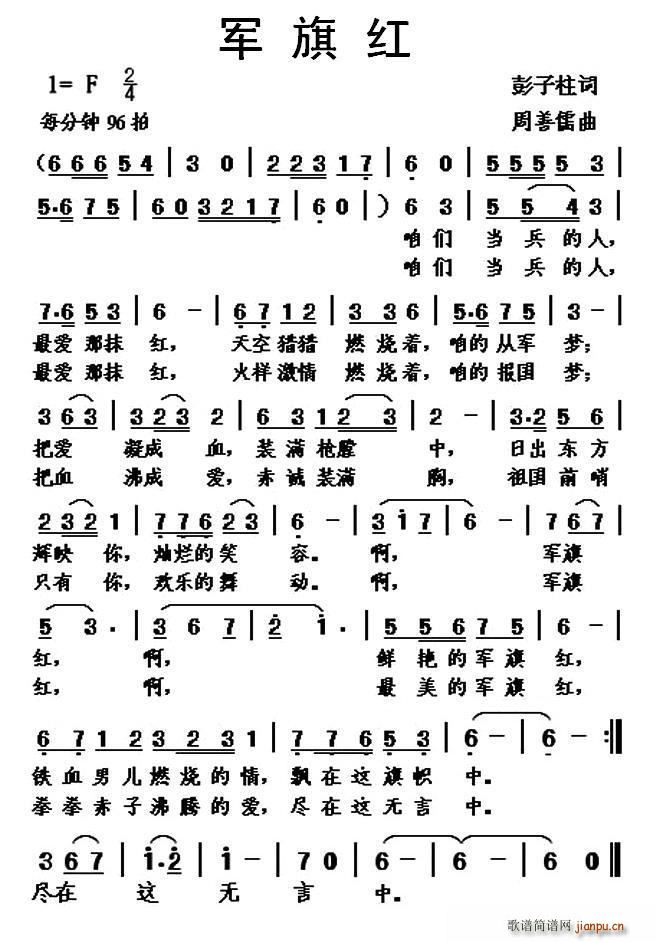 军旗红
1= F 2/4
彭子柱词
每分钟 96 拍
周善儒曲
(6 6 6 5 4 | 3 0 | 2 2 3 1 7 | 6 0 | 5 5 5 5 3 |
5·6 7 5 | 6 0 3 2 1 7 | 6 0 | ) 6 3 | 5 5 4 3 |
咱们 当兵的人,
咱们 当兵的人,
7·6 5 3 | 6 - | 6 7 1 2 | 3 3 6 | 5·6 7 5 | 3 - |
最爱那抹红, 天空猎猎燃烧着, 咱的从军梦;
最爱那抹红, 火样激情燃烧着, 咱的报国梦;
3 6 3 | 3 2 3 2 | 6 3 3 1 2 3 | 2 - | 3·2 5 6 |
把爱 凝成 血, 装满枪膛 中, 日出东方
把血 沸成 爱, 赤诚装满 胸, 祖国前哨
2 3 2 1 | 7 7 6 2 3 | 6 - | 3 1 7 | 6 - | 7 6 7 |
辉映 你, 灿烂的笑 容。 啊, 军旗
只有 你, 欢乐的舞 动。 啊, 军旗
5 3 · | 3 6 7 | 2 1 · | 5 5 6 7 5 | 6 - |
红, 啊, 鲜艳的军旗红,
红, 啊, 最美的军旗红,
6 7 1 2 3 2 3 1 | 7 7 6 5 3 | 6 - | 6 - :||
铁血男儿燃烧的情, 飘在这旗帜 中。
拳拳赤子沸腾的爱, 尽在这无言 中。
3 6 7 | 1·2 | 1 - | 7 0 | 6 - | 6 - | 6 0 ||
尽在 这 无 言 中。
歌谱简谱网
jianpu.cn